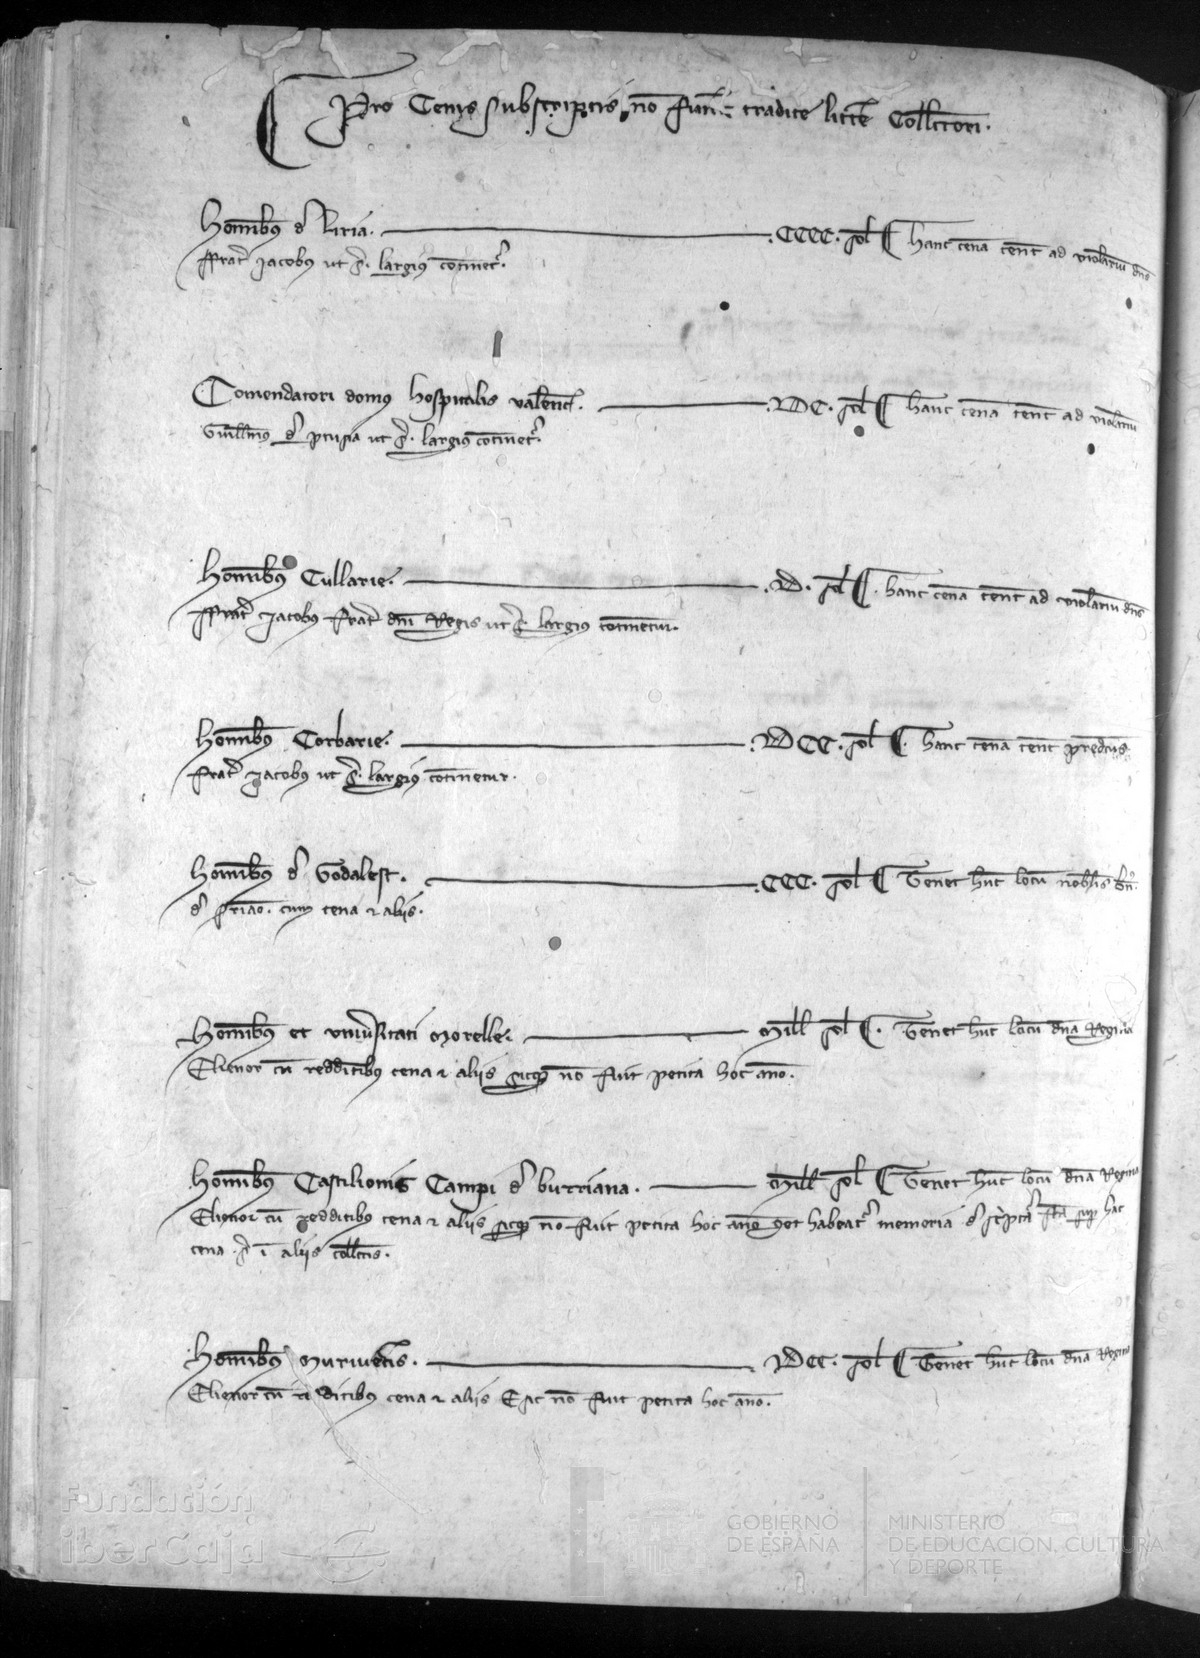 Pro Cenis subscriptis no fuer tradite littere Collectori.
Hominibus d Liria. CCCC. sol hanc cena tenet ad violariu dns
Frater Jacobus ut s. largius continetr.
Comendatori domus hospitalis valent. DC. sol hanc cena tenet ad violariu
Guillmus d ut s. largius continetr.
Hominibus Cullarie. D. sol. hanc cena tenet ad violariu dns
Frater Jacobus frater dni Regis ut s. largius continetur.
Hominibus Corbarie. DCC. sol. hanc cena tenet predcus
frater Jacobus ut s. largius continetur.
Hominibus d Godalest. CCC. sol Tenet hunc locu nobilis
d cum cena et aliis.
Hominibus et universitati Morelle. Mill sol. Tenet hunc locu dna Regina
Elienor cu redditibus cena et aliis sicque no fuit petita hoc anno.
Hominibus Castilionis Campi d burriana. Mill sol Tenet hunc locu dna Regina
Elienor cu redditibus cena et aliis sicque no fuit petita hoc anno habeatr memoria d hac
cena s. i aliis collectis.
Hominibus Muriveteris. DCC. sol Tenet hunc locu dna Regina
Elienor cu redditibus cena et aliis E sic no fuit petita hoc anno.
Fundación
iberCaja
GOBIERNO
DE ESPAÑA
MINISTERIO
DE EDUCACIÓN, CULTURA
Y DEPORTE